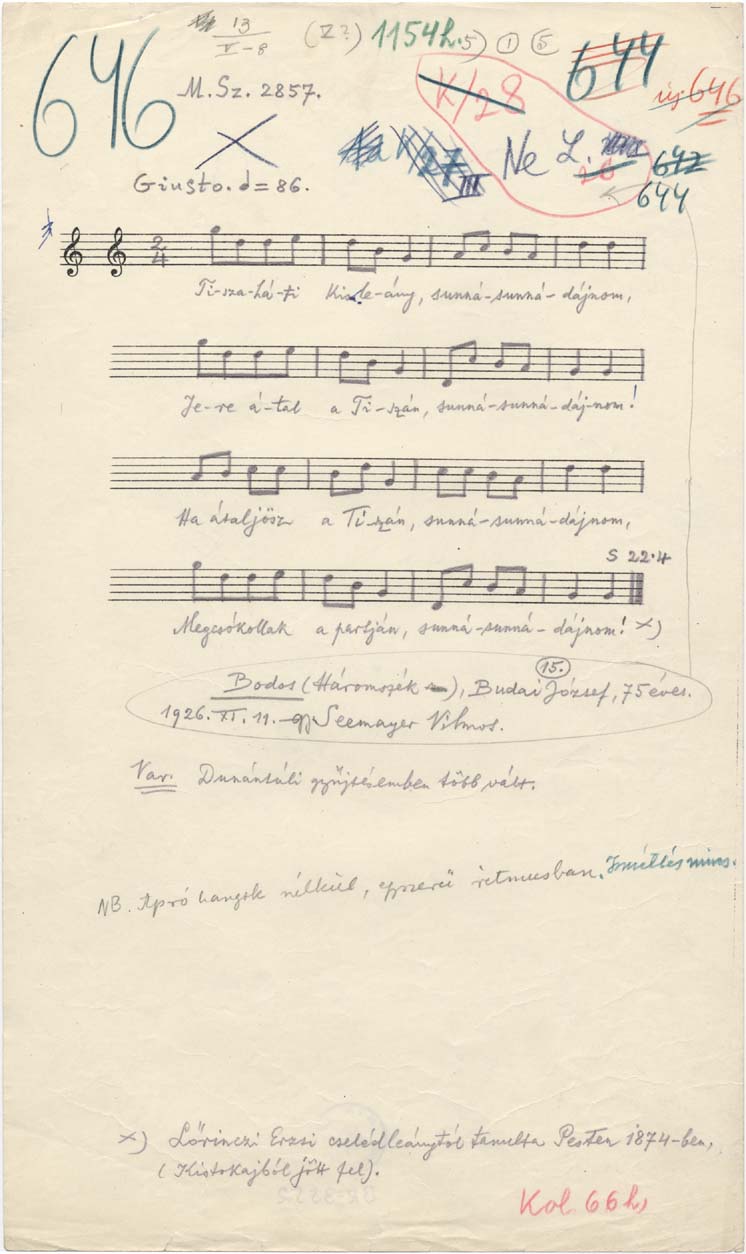 13
V-8
(V?) 1154h. 5) 1 5
646
M. Sz. 2857.
K/28
644
új 646
27
III
Ne L.
26
642
644
Giusto. d = 86.
2
4
Ti-sza-há-ti Kis le-ány, sunná-sunná-dájnom,
Je-re á-tal a Ti-szán, sunná-sunná-dáj-nom!
Ha átaljösz a Ti-szán, sunná-sunná-dájnom,
S 22.4
Megcsókollak a partján, sunná-sunná-dájnom! x)
15.
Bodos (Háromszék), Budai József, 75 éves.
1926. XI. 11. Seemayer Vilmos.
Var. Dunántúli gyűjtésemben több vált.
NB. Apró hangok nélkül, egyszerű ritmusban. Ismétlés nincs.
x) Lőrinczi Erzsi cselédleánytól tanulta Pesten 1874-ben,
(Kistokajból jött fel).
Kol 66 h,